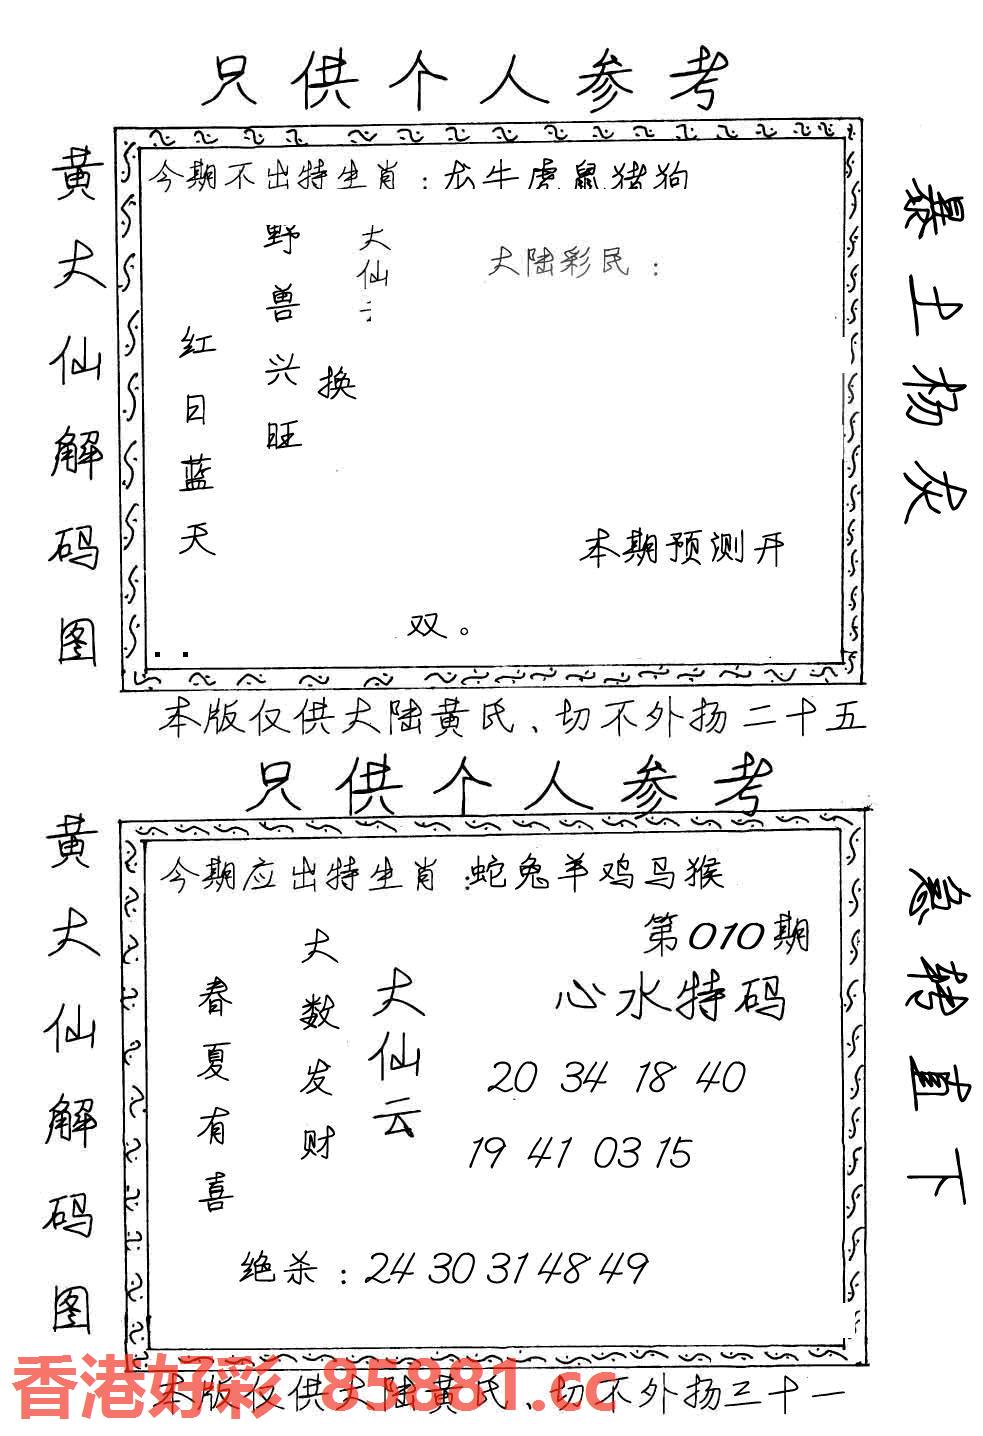 只供个人参考
黄大仙解码图
今期不出特生肖：龙牛虎鼠猪狗
大仙云
野兽兴旺
换
红日蓝天
大陆彩民：
本期预测开
双。
暴土杨灰
本版仅供大陆黄氏、切不外扬二十五
只供个人参考
黄大仙解码图
今期应出特生肖：蛇兔羊鸡马猴
第010期
大仙云
大数发财
春夏有喜
心水特码
20 34 18 40
19 41 03 15
绝杀：24 30 31 48 49
急转直下
香港好彩 85881.cc
本版仅供大陆黄氏、切不外扬三十一